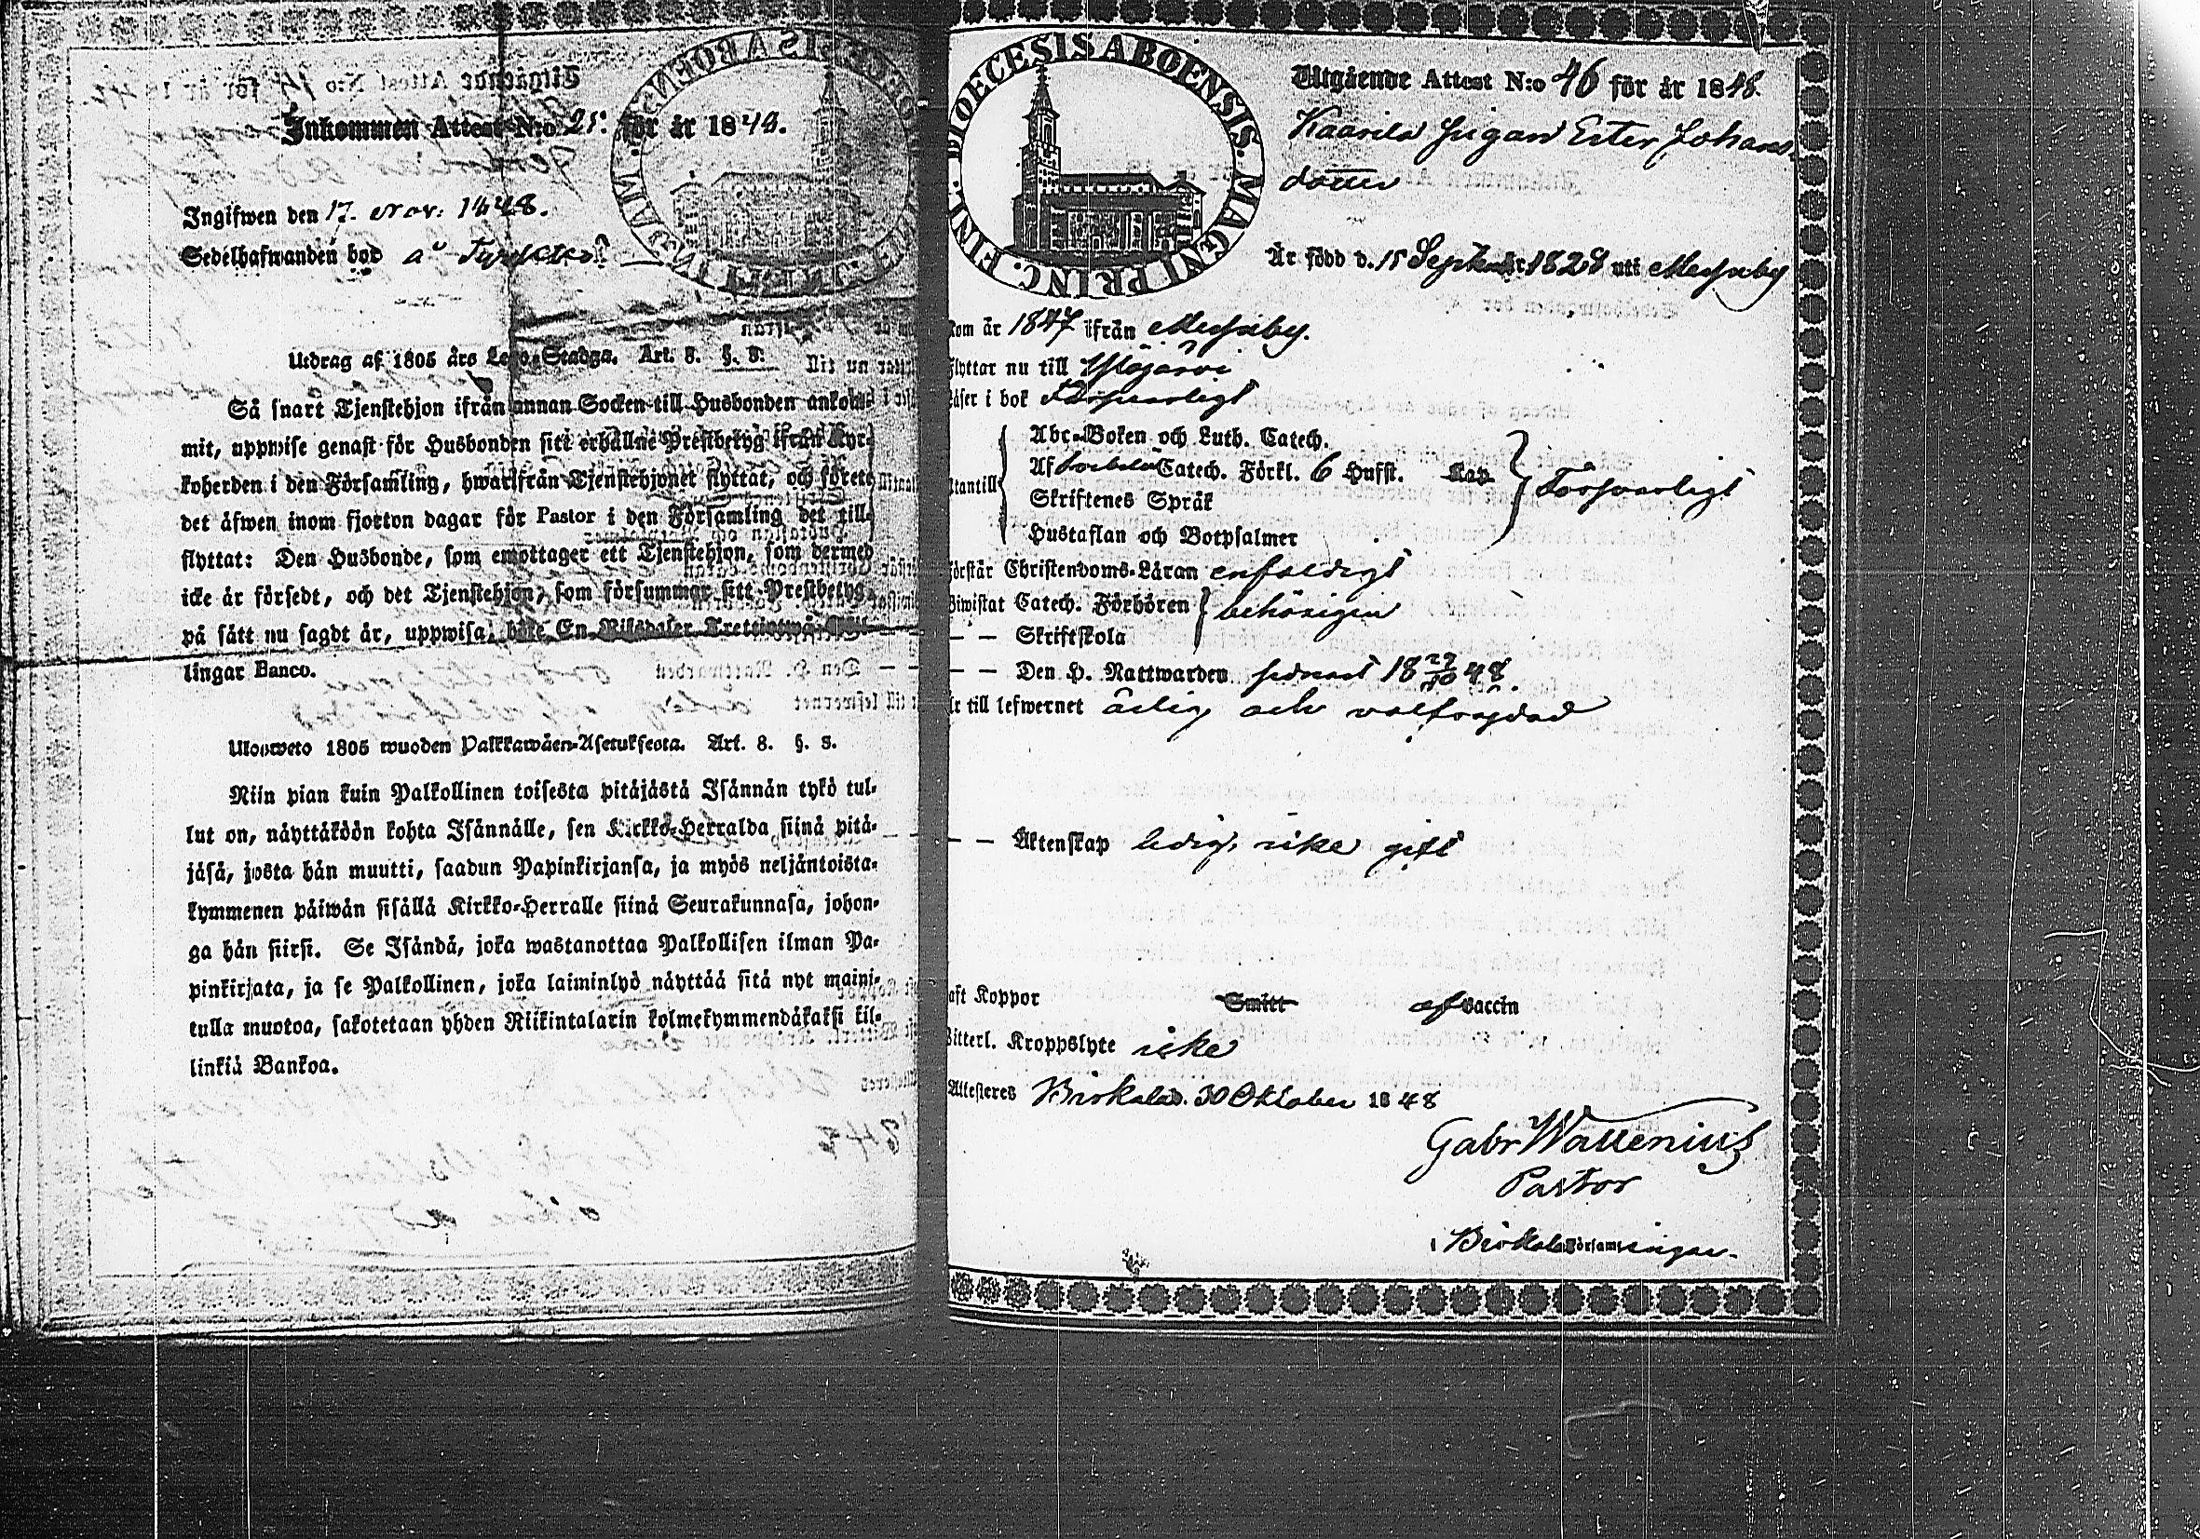 Inkommen Attest N:o 25. för år 1848.
Ingifwen den 17. Nov: 1848.
Sedelhafwanden bor å
Utdrag af 1805 års Lego-Stadga. Art. 8. §. 3.
Så snart Tjenstehjon ifrån annan Socken till Husbonden ankom-
mit, uppwise genast för Husbonden sitt erhållne Prestbetyg ifrån Kyr-
koherden i den Församling, hwarifrån Tjenstehjonet flyttat, och förete
det äfwen inom fjorton dagar för Pastor i den Församling det till-
flyttat: Den Husbonde, som emottager ett Tjenstehjon, som dermed
icke är försedt, och det Tjenstehjon, som försummar sitt Prestbetyg,
på sätt nu sagdt är, uppwisa, böte En Riksdaler Trettiotwå Skil-
lingar Banco.
Ulosweto 1805 wuoden Palkkawäen-Asetuksesta. Art. 8. §. 3.
Niin pian kuin Palkollinen toisesta pitäjästä Isännän tykö tul-
lut on, näyttäköön kohta Isännälle, sen Kirkko-Herralda siinä pitä-
jäsä, josta hän muutti, saadun Papinkirjansa, ja myös neljäntoista-
kymmenen päiwän sisällä Kirkko-Herralle siinä Seurakunnasa, johon-
ga hän siirsi. Se Isändä, joka wastanottaa Palkollisen ilman Pa-
pinkirjata, ja se Palkollinen, joka laiminlyö näyttää sitä nyt maini-
tulla muotoa, sakotetaan yhden Riikintalarin kolmekymmendäkaksi kil-
linkiä Bankoa.
DIOECESIS ABOENSIS. MAGNI PRINC. FINL.
Utgående Attest N:o 46 för år 1848.
Kaarila Pigan Ester Johans-
dotter
Är född d. 15 September 1828 uti Messuby
kom år 1847 ifrån Messuby.
flyttar nu till Ylöjärvi
läser i bok Försvarligt
Abc-Boken och Luth. Catech.
Af Catech. Förkl. 6 Hufst. Kap
utantill Försvarligt
Skriftenes Språk
Hustaflan och Botpsalmer
förstår Christendoms-Läran enfaldigt
Biwistat Catech. Förhören behörigen
— — Skriftskola
— — Den H. Nattwarden sednast 18 29/10 48.
är till lefwernet ärlig och välfrägdad
— — Äktenskap ledig, icke gift
haft Koppor Smitt af vaccin
Witterl. Kroppslyte icke
Attesteres Birkala d. 30 Oktober 1848
Gabr Wallenius
Pastor
i Birkala Församlingar.